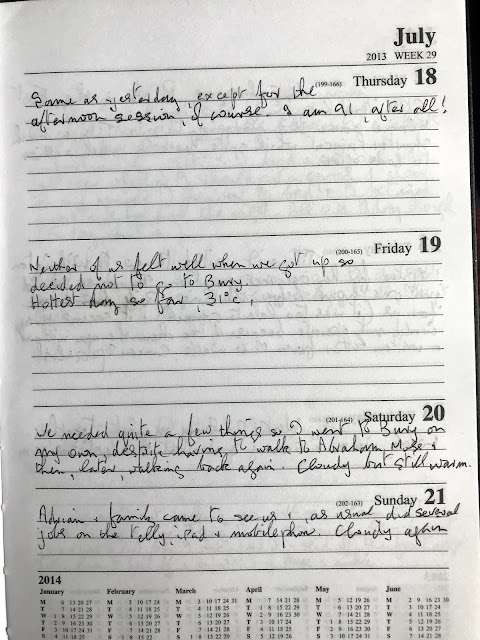 July
2013 WEEK 29
(199-166) Thursday 18
Same as yesterday, except for the
afternoon session, of course. I am 91, after all!
(200-165) Friday 19
Neither of us felt well when we got up so
decided not to go to Bury.
Hottest day so far, 31°c.
(201-164) Saturday 20
We needed quite a few things so I went to Bury on
my own, despite having to walk to Abraham Moss &
then, later, walking back again. Cloudy but still warm.
(202-163) Sunday 21
Adrian & family came to see us &, as usual did several
jobs on the telly, iPad & mobile phone. Cloudy again
2014
January February March April May June
M 6 13 20 27 M 3 10 17 24 M 3 10 17 24 31 M 7 14 21 28 M 5 12 19 26 M 2 9 16 23 30
T 7 14 21 28 T 4 11 18 25 T 4 11 18 25 T 1 8 15 22 29 T 6 13 20 27 T 3 10 17 24
W 1 8 15 22 29 W 5 12 19 26 W 5 12 19 26 W 2 9 16 23 30 W 7 14 21 28 W 4 11 18 25
T 2 9 16 23 30 T 6 13 20 27 T 6 13 20 27 T 3 10 17 24 T 1 8 15 22 29 T 5 12 19 26
F 3 10 17 24 31 F 7 14 21 28 F 7 14 21 28 F 4 11 18 25 F 2 9 16 23 30 F 6 13 20 27